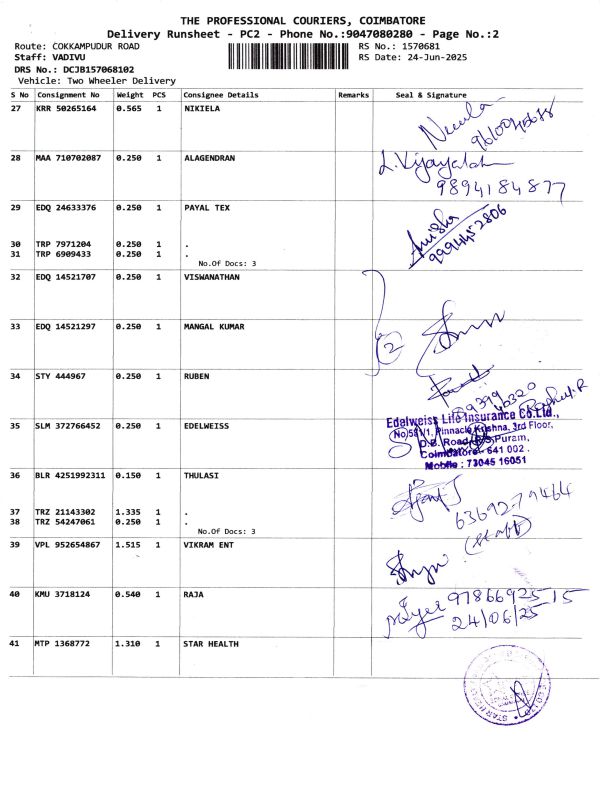 THE PROFESSIONAL COURIERS, COIMBATORE
Delivery Runsheet - PC2 - Phone No.:9047080280 - Page No.:2
Route: COKKAMPUDUR ROAD
RS No.: 1570681
Staff: VADIVU
RS Date: 24-Jun-2025
DRS No.: DCJB157068102
Vehicle: Two Wheeler Delivery
S No Consignment No Weight PCS Consignee Details Remarks Seal & Signature
27 KRR 50265164 0.565 1 NIKIELA
28 MAA 710702087 0.250 1 ALAGENDRAN
9894184877
29 EDQ 24633376 0.250 1 PAYAL TEX
Anisha
9994452806
30 TRP 7971204 0.250 1 .
31 TRP 6909433 0.250 1 .
No.Of Docs: 3
32 EDQ 14521707 0.250 1 VISWANATHAN
33 EDQ 14521297 0.250 1 MANGAL KUMAR
2
34 STY 444967 0.250 1 RUBEN
35 SLM 372766452 0.250 1 EDELWEISS
Edelweiss Life Insurance Co.Ltd.,
Pinnacle Krishna, 3rd Floor,
D.B. Road, R.S.Puram,
Coimbatore - 641 002.
Mobile : 73045 16051
36 BLR 4251992311 0.150 1 THULASI
6369279464
(Staff)
37 TRZ 21143302 1.335 1 .
38 TRZ 54247061 0.250 1 .
No.Of Docs: 3
39 VPL 952654867 1.515 1 VIKRAM ENT
40 KMU 3718124 0.540 1 RAJA
9786692515
24/06/25
41 MTP 1368772 1.310 1 STAR HEALTH